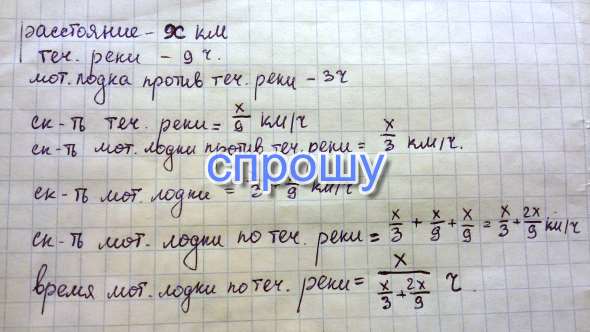 расстояние - x км
теч. реки - 9 ч.
мот. лодка против теч. реки - 3 ч
ск-ть теч. реки = x/9 км/ч
ск-ть мот. лодки против теч. реки = x/3 км/ч.
спрошу
ск-ть мот. лодки = 3 9 км/ч
ск-ть мот. лодки по теч. реки = x/3 + x/9 + x/9 = x/3 + 2x/9 км/ч
время мот. лодки по теч. реки = x/(x/3 + 2x/9) ч.